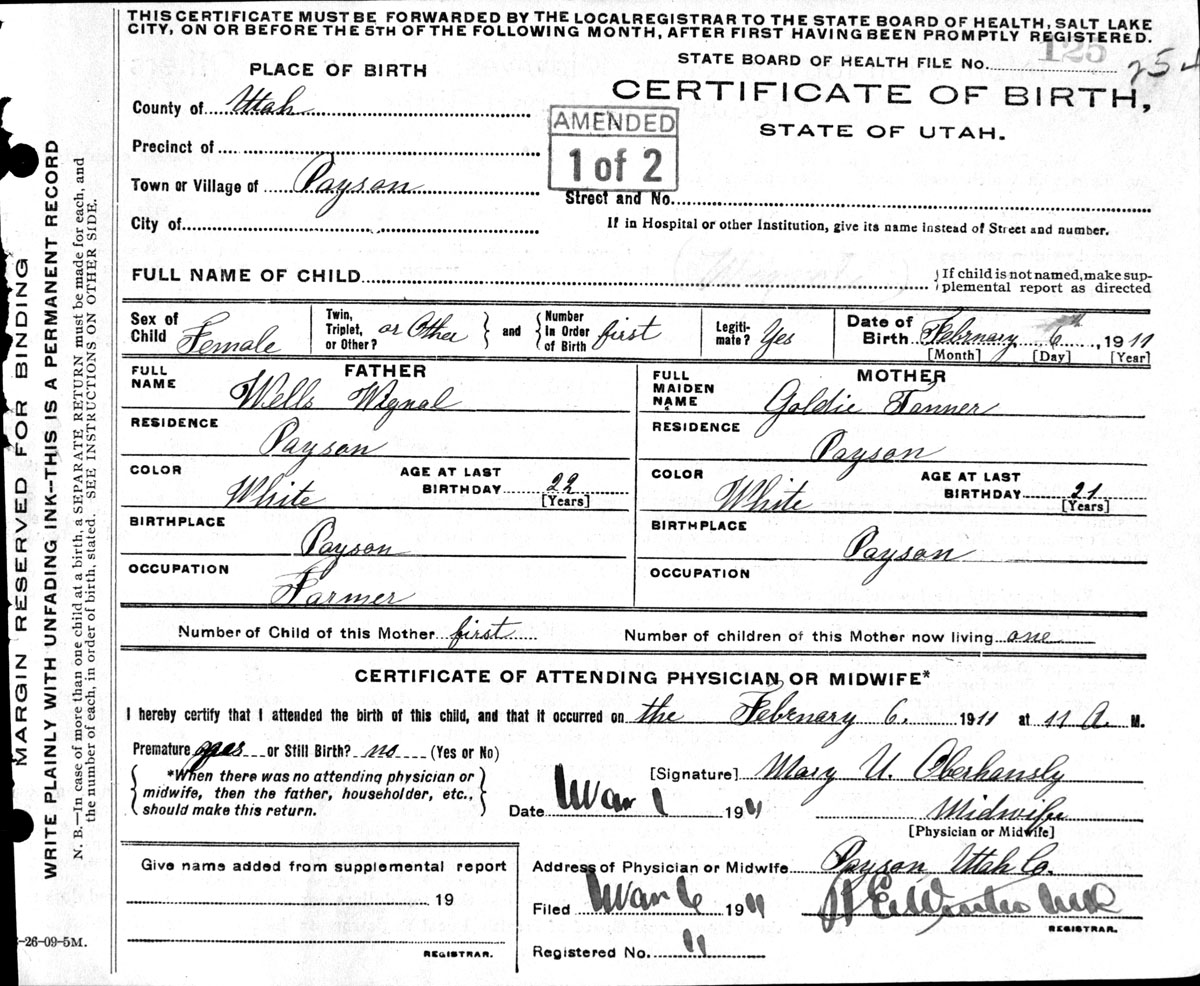 THIS CERTIFICATE MUST BE FORWARDED BY THE LOCAL REGISTRAR TO THE STATE BOARD OF HEALTH, SALT LAKE
CITY, ON OR BEFORE THE 5TH OF THE FOLLOWING MONTH, AFTER FIRST HAVING BEEN PROMPTLY REGISTERED.
STATE BOARD OF HEALTH FILE No. 125
254
PLACE OF BIRTH
CERTIFICATE OF BIRTH,
STATE OF UTAH.
County of Utah
AMENDED
1 of 2
Precinct of
Town or Village of Payson
Street and No.
City of
If in Hospital or other Institution, give its name instead of Street and number.
FULL NAME OF CHILD
If child is not named, make sup-
plemental report as directed
Sex of Child Female
Twin, Triplet, or Other? or Other
and
Number In Order of Birth first
Legiti-mate? Yes
Date of Birth February 6, 1911
[Month] [Day] [Year]
FATHER
FULL NAME Wells Wignal
RESIDENCE Payson
COLOR White
AGE AT LAST BIRTHDAY 22
[Years]
BIRTHPLACE Payson
OCCUPATION Farmer
MOTHER
FULL MAIDEN NAME Goldie Tanner
RESIDENCE Payson
COLOR White
AGE AT LAST BIRTHDAY 21
[Years]
BIRTHPLACE Payson
OCCUPATION
Number of Child of this Mother first
Number of children of this Mother now living one
CERTIFICATE OF ATTENDING PHYSICIAN OR MIDWIFE*
I hereby certify that I attended the birth of this child, and that it occurred on the February 6. 1911 at 11 A. M.
Premature or Still Birth? no (Yes or No)
*When there was no attending physician or
midwife, then the father, householder, etc.,
should make this return.
[Signature] Mary U. Oberhansly
Date Mar 1 1911
Midwife
[Physician or Midwife]
Give name added from supplemental report
19
REGISTRAR.
Address of Physician or Midwife Payson Utah Co.
Filed Mar 6 1911
REGISTRAR.
Registered No. 11
-26-09-5M.
MARGIN RESERVED FOR BINDING
WRITE PLAINLY WITH UNFADING INK--THIS IS A PERMANENT RECORD
N. B.—In case of more than one child at a birth, a SEPARATE RETURN must be made for each, and
the number of each, in order of birth, stated. SEE INSTRUCTIONS ON OTHER SIDE.